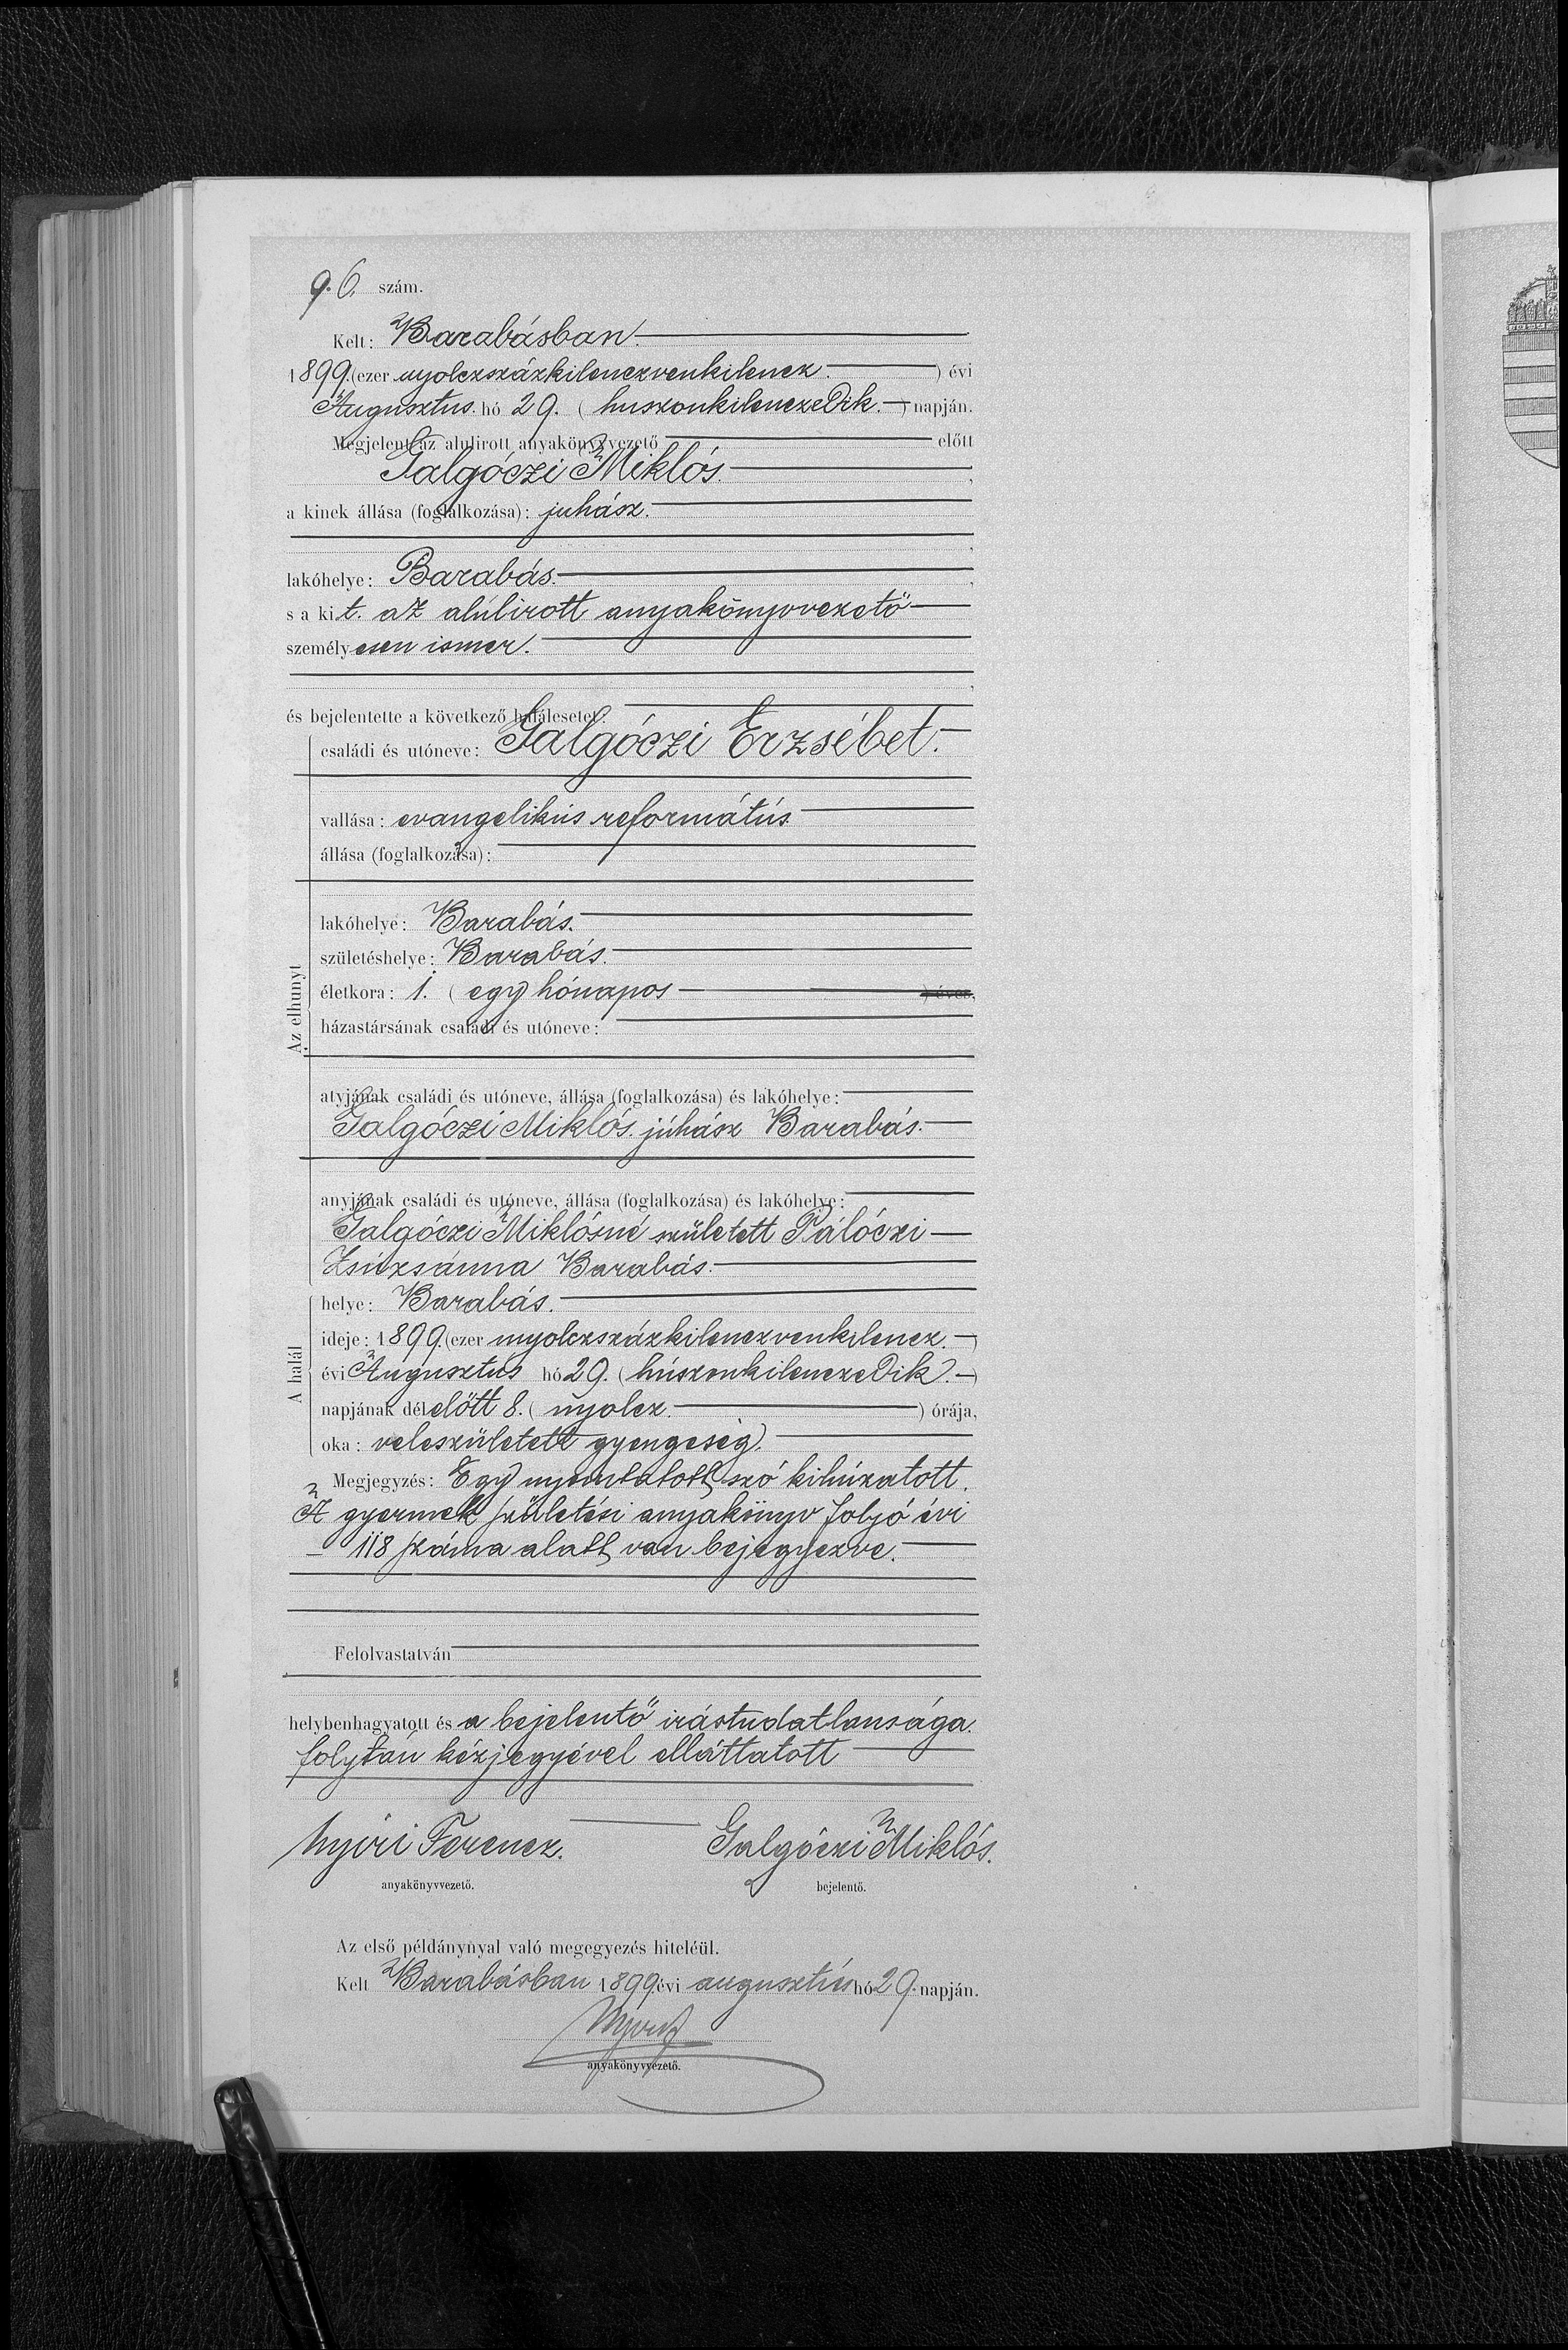 96. szám.
Kelt: Barabásban.
1899. (ezer nyolczszázkilenczvenkilencz.) évi
Augusztus. hó 29. (huszonkilenczedik.) napján.
Megjelent az alulirott anyakönyvvezető előtt
Galgóczi Miklós.
a kinek állása (foglalkozása): juhász.
lakóhelye: Barabás.
s a kit. az alúlirott anyakönyvvezető
személyesen ismer.
és bejelentette a következő halálesetet:
családi és utóneve: Galgóczi Erzsébet.
vallása: evangelikús reformátús
állása (foglalkozása):
Az elhunyt
lakóhelye: Barabás.
születéshelye: Barabás.
életkora: 1. (egy hónapos ) éves,
házastársának családi és utóneve:
atyjának családi és utóneve, állása (foglalkozása) és lakóhelye:
Galgóczi Miklós. júhász Barabás.
anyjának családi és utóneve, állása (foglalkozása) és lakóhelye:
Galgóczi Miklósné született Pálóczi
Zsúzsánna Barabás.
A halál
helye: Barabás.
ideje: 1899. (ezer nyolczszázkilenczvenkilencz.)
évi Augusztús hó 29. (húszonkilenczedik.)
napjának délelőtt 8. (nyolcz.) órája,
oka: veleszületett gyengeség.
Megjegyzés: Egy nyomtatott szó kihúzatott.
A gyermek születési anyakönyv folyó évi
118 száma alatt van bejegyezve.
Felolvastatván
helybenhagyatott és a bejelentő irástudatlansága.
folytán kézjegyével elláttatott
Nyiri Ferencz. Galgóczi Miklós.
anyakönyvvezető. bejelentő.
Az első példánynyal való megegyezés hiteléül.
Kelt Barabásban 1899. évi augusztús hó 29. napján.
anyakönyvvezető.